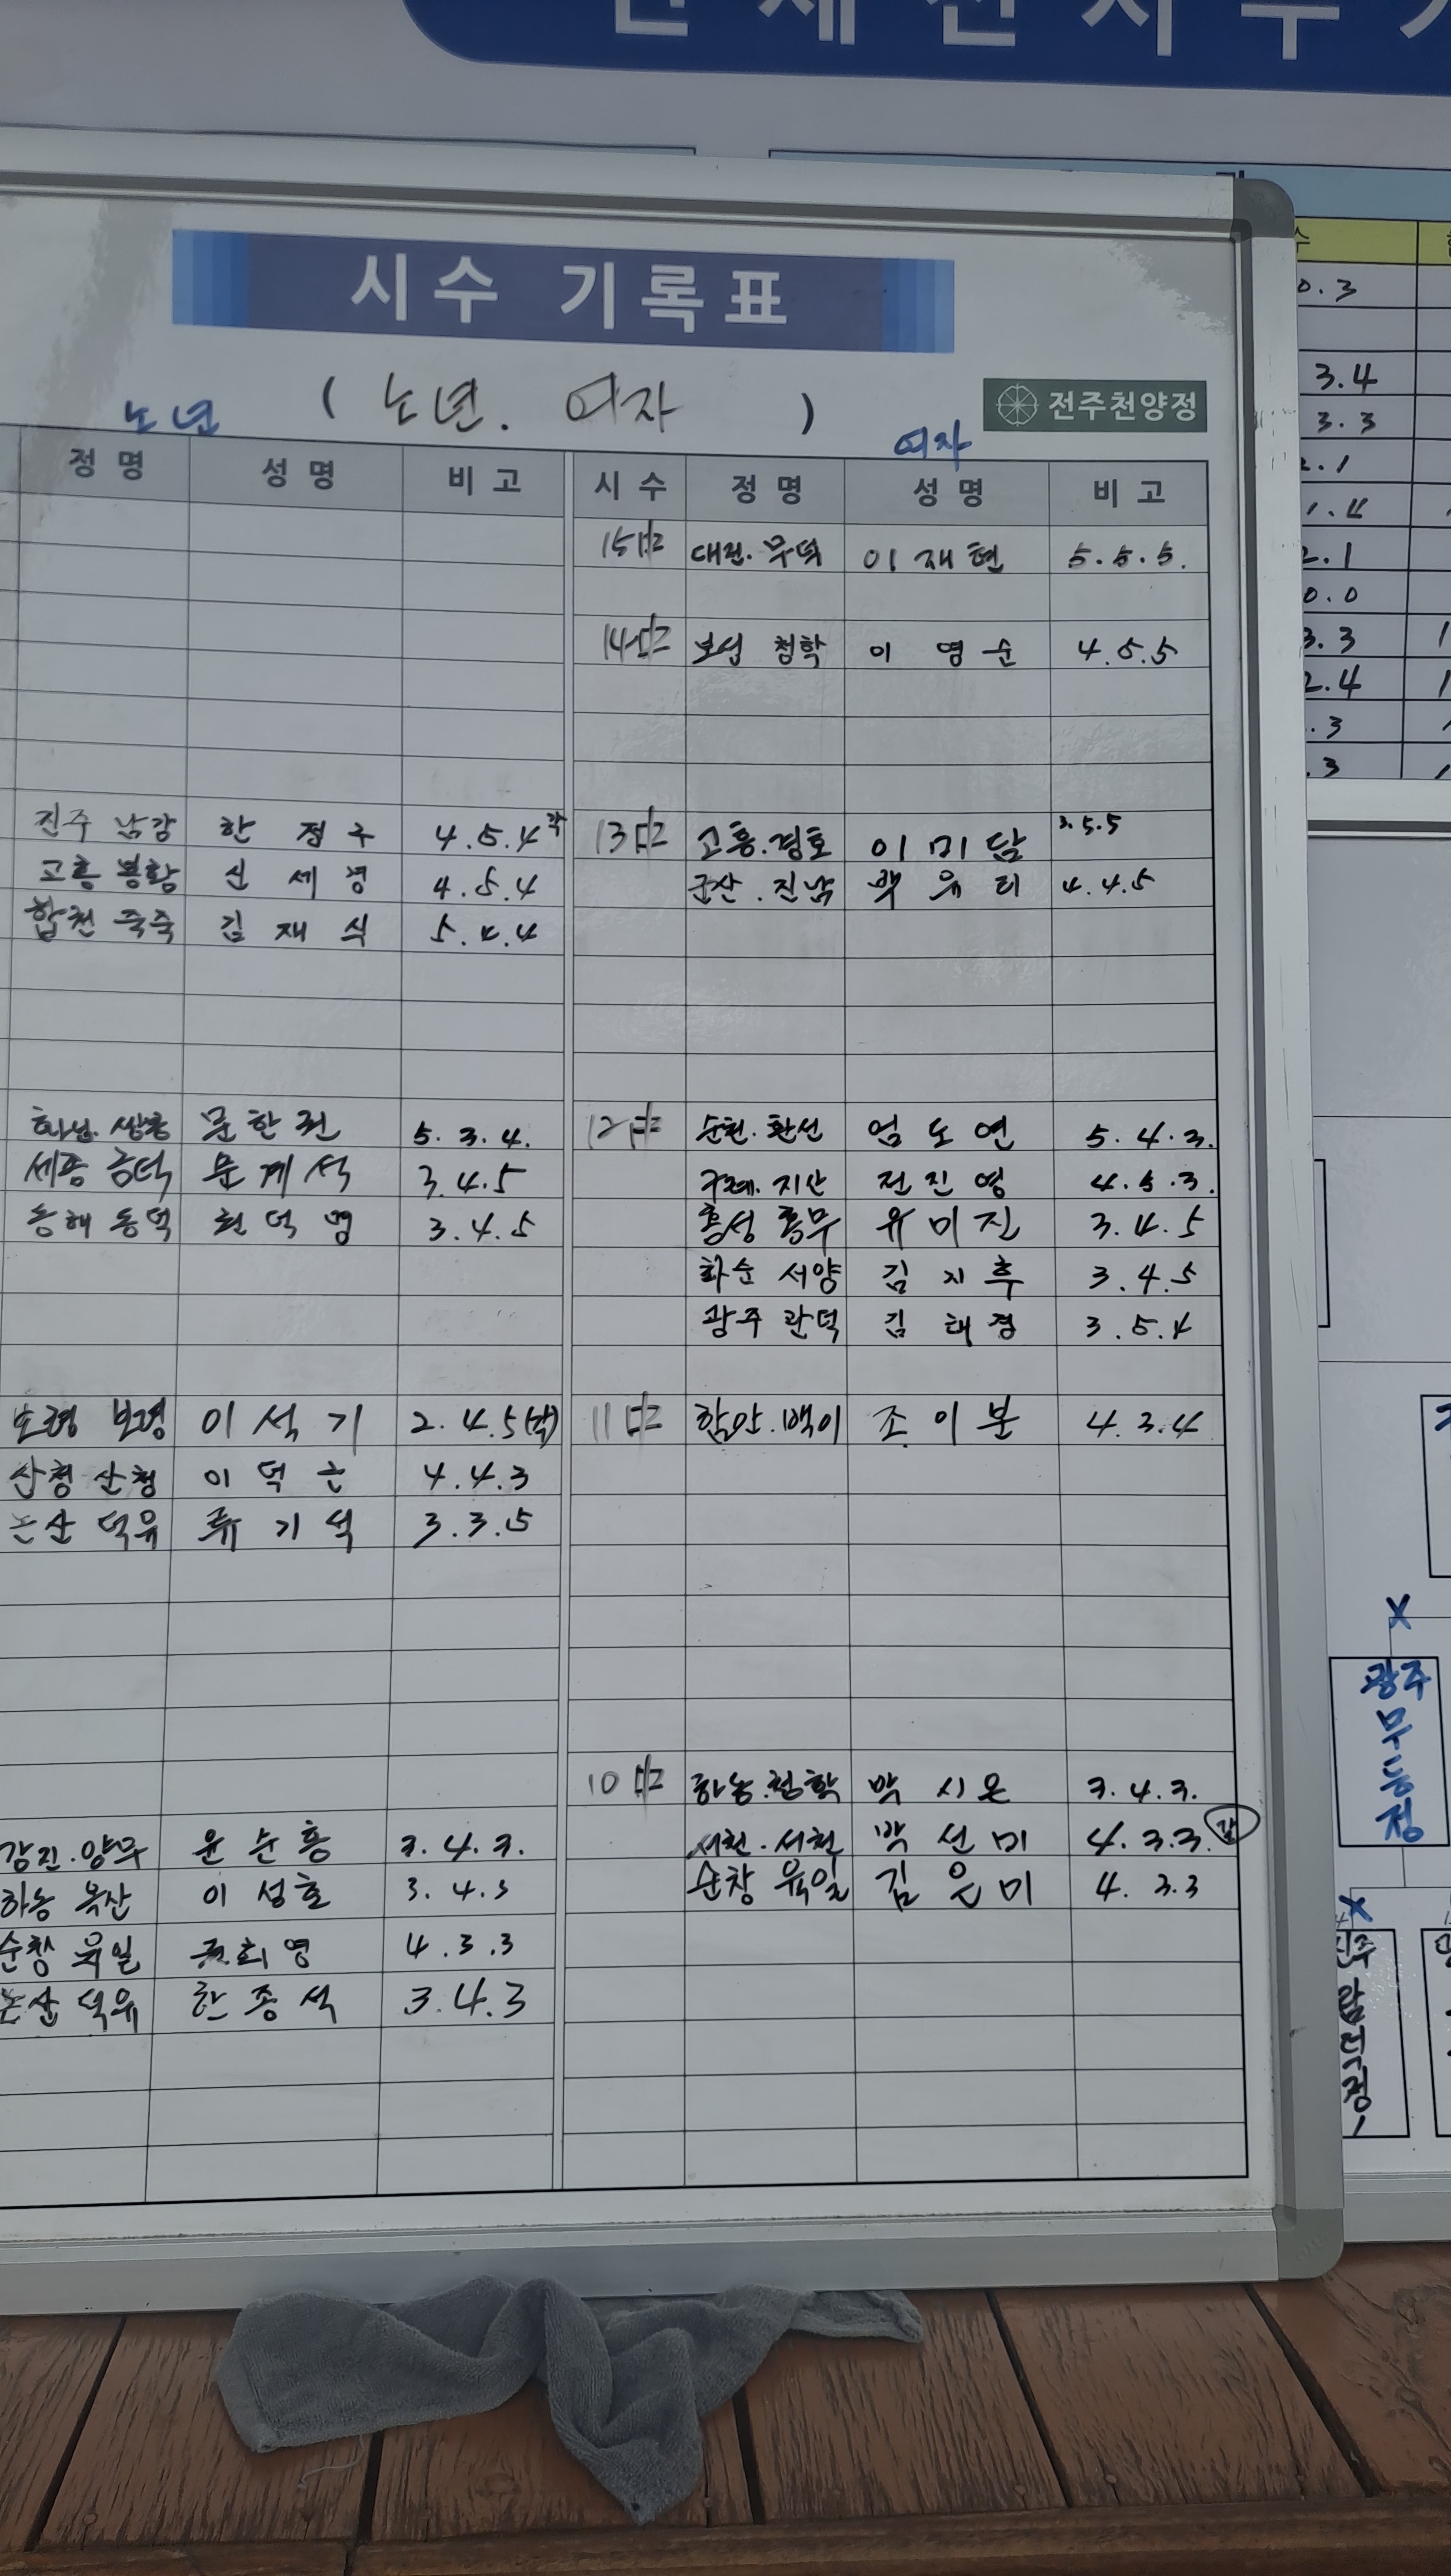 시수 기록표
( 노년. 여자 )
전주천양정
노년
여자
정명 성명 비고 시수 정명 성명 비고
15中 대전.무덕 이재현 5.5.5.
14中 보성 청학 이영순 4.5.5
진주 남강 한정구 4.5.4 13中 고흥.경호 이미담 3.5.5
고흥 봉황 신세경 4.5.4 군산.진남 백유리 4.4.5
합천 죽죽 김재식 5.4.4
화성. 쌍용 문한권 5.3.4. 12中 순천.환선 엄도연 5.4.3.
세종 금덕 문계석 3.4.5 구례.지산 전진영 4.5.3.
동해 동덕 최덕명 3.4.5 홍성 홍무 유미진 3.4.5
화순 서양 김지후 3.4.5
광주 관덕 김태경 3.5.4
보령 보령 이석기 2.4.5 11中 함안.백이 조이분 4.3.4
산청 산청 이덕근 4.4.3
논산 덕유 류기석 3.3.5
10中 하동.청학 박시온 3.4.3.
강진.양무 윤순홍 3.4.3. 서천.서천 박선미 4.3.3.
하동 옥산 이성호 3.4.3 순창 육일 김은미 4.3.3
순창 육일 희영 4.3.3
논산 덕유 한종석 3.4.3
0.3
3.4
3.3
2.1
1.4
2.1
0.0
3.3
2.4
.3
.3
X
광주
무등정
X